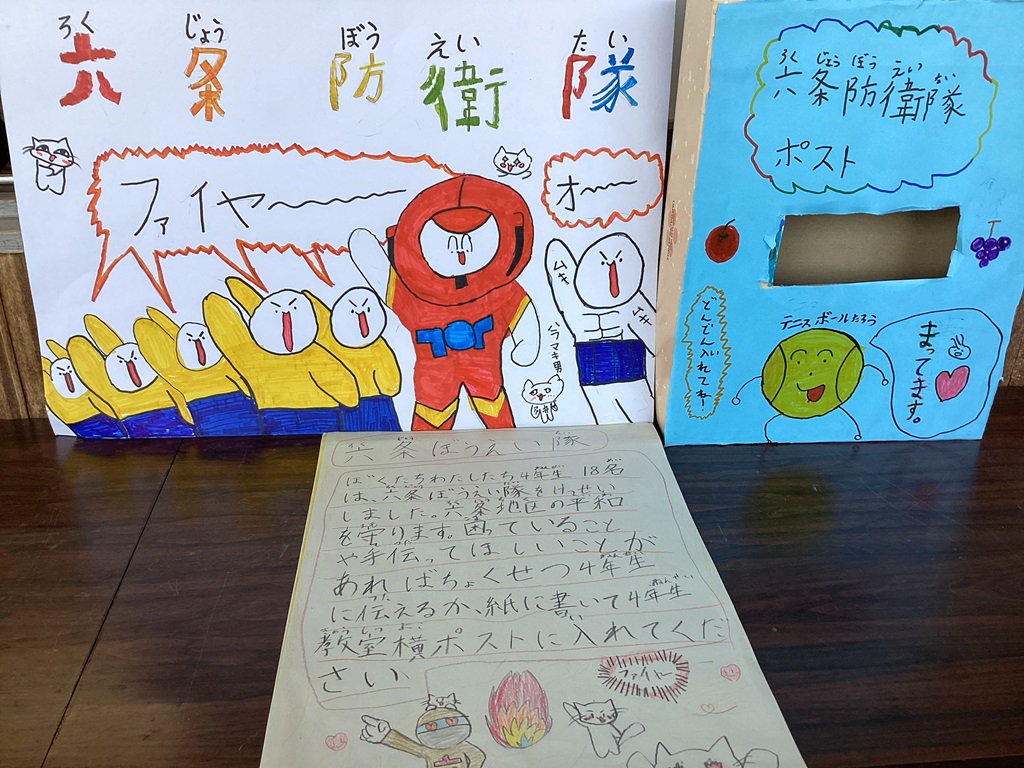 ろく じょう ぼう えい たい
六条防衛隊
ファイヤー
オー
ムキ
ムキ
ハラマキ男
ろく じょう ぼう えい たい
六条防衛隊
ポスト
どんどん入れてねー!
テニスボールたろう
まってます。
六条ぼうえい隊
ぼくたちわたしたち、4年生 18名
は、六条ぼうえい隊をけっせい
しました。六条地区の平和
を守ります。困っていること
や手伝ってほしいことが
あればちょくせつ4年生
に伝えるか、紙に書いて4年生
教室横ポストに入れてくだ
さい。
ファイヤー